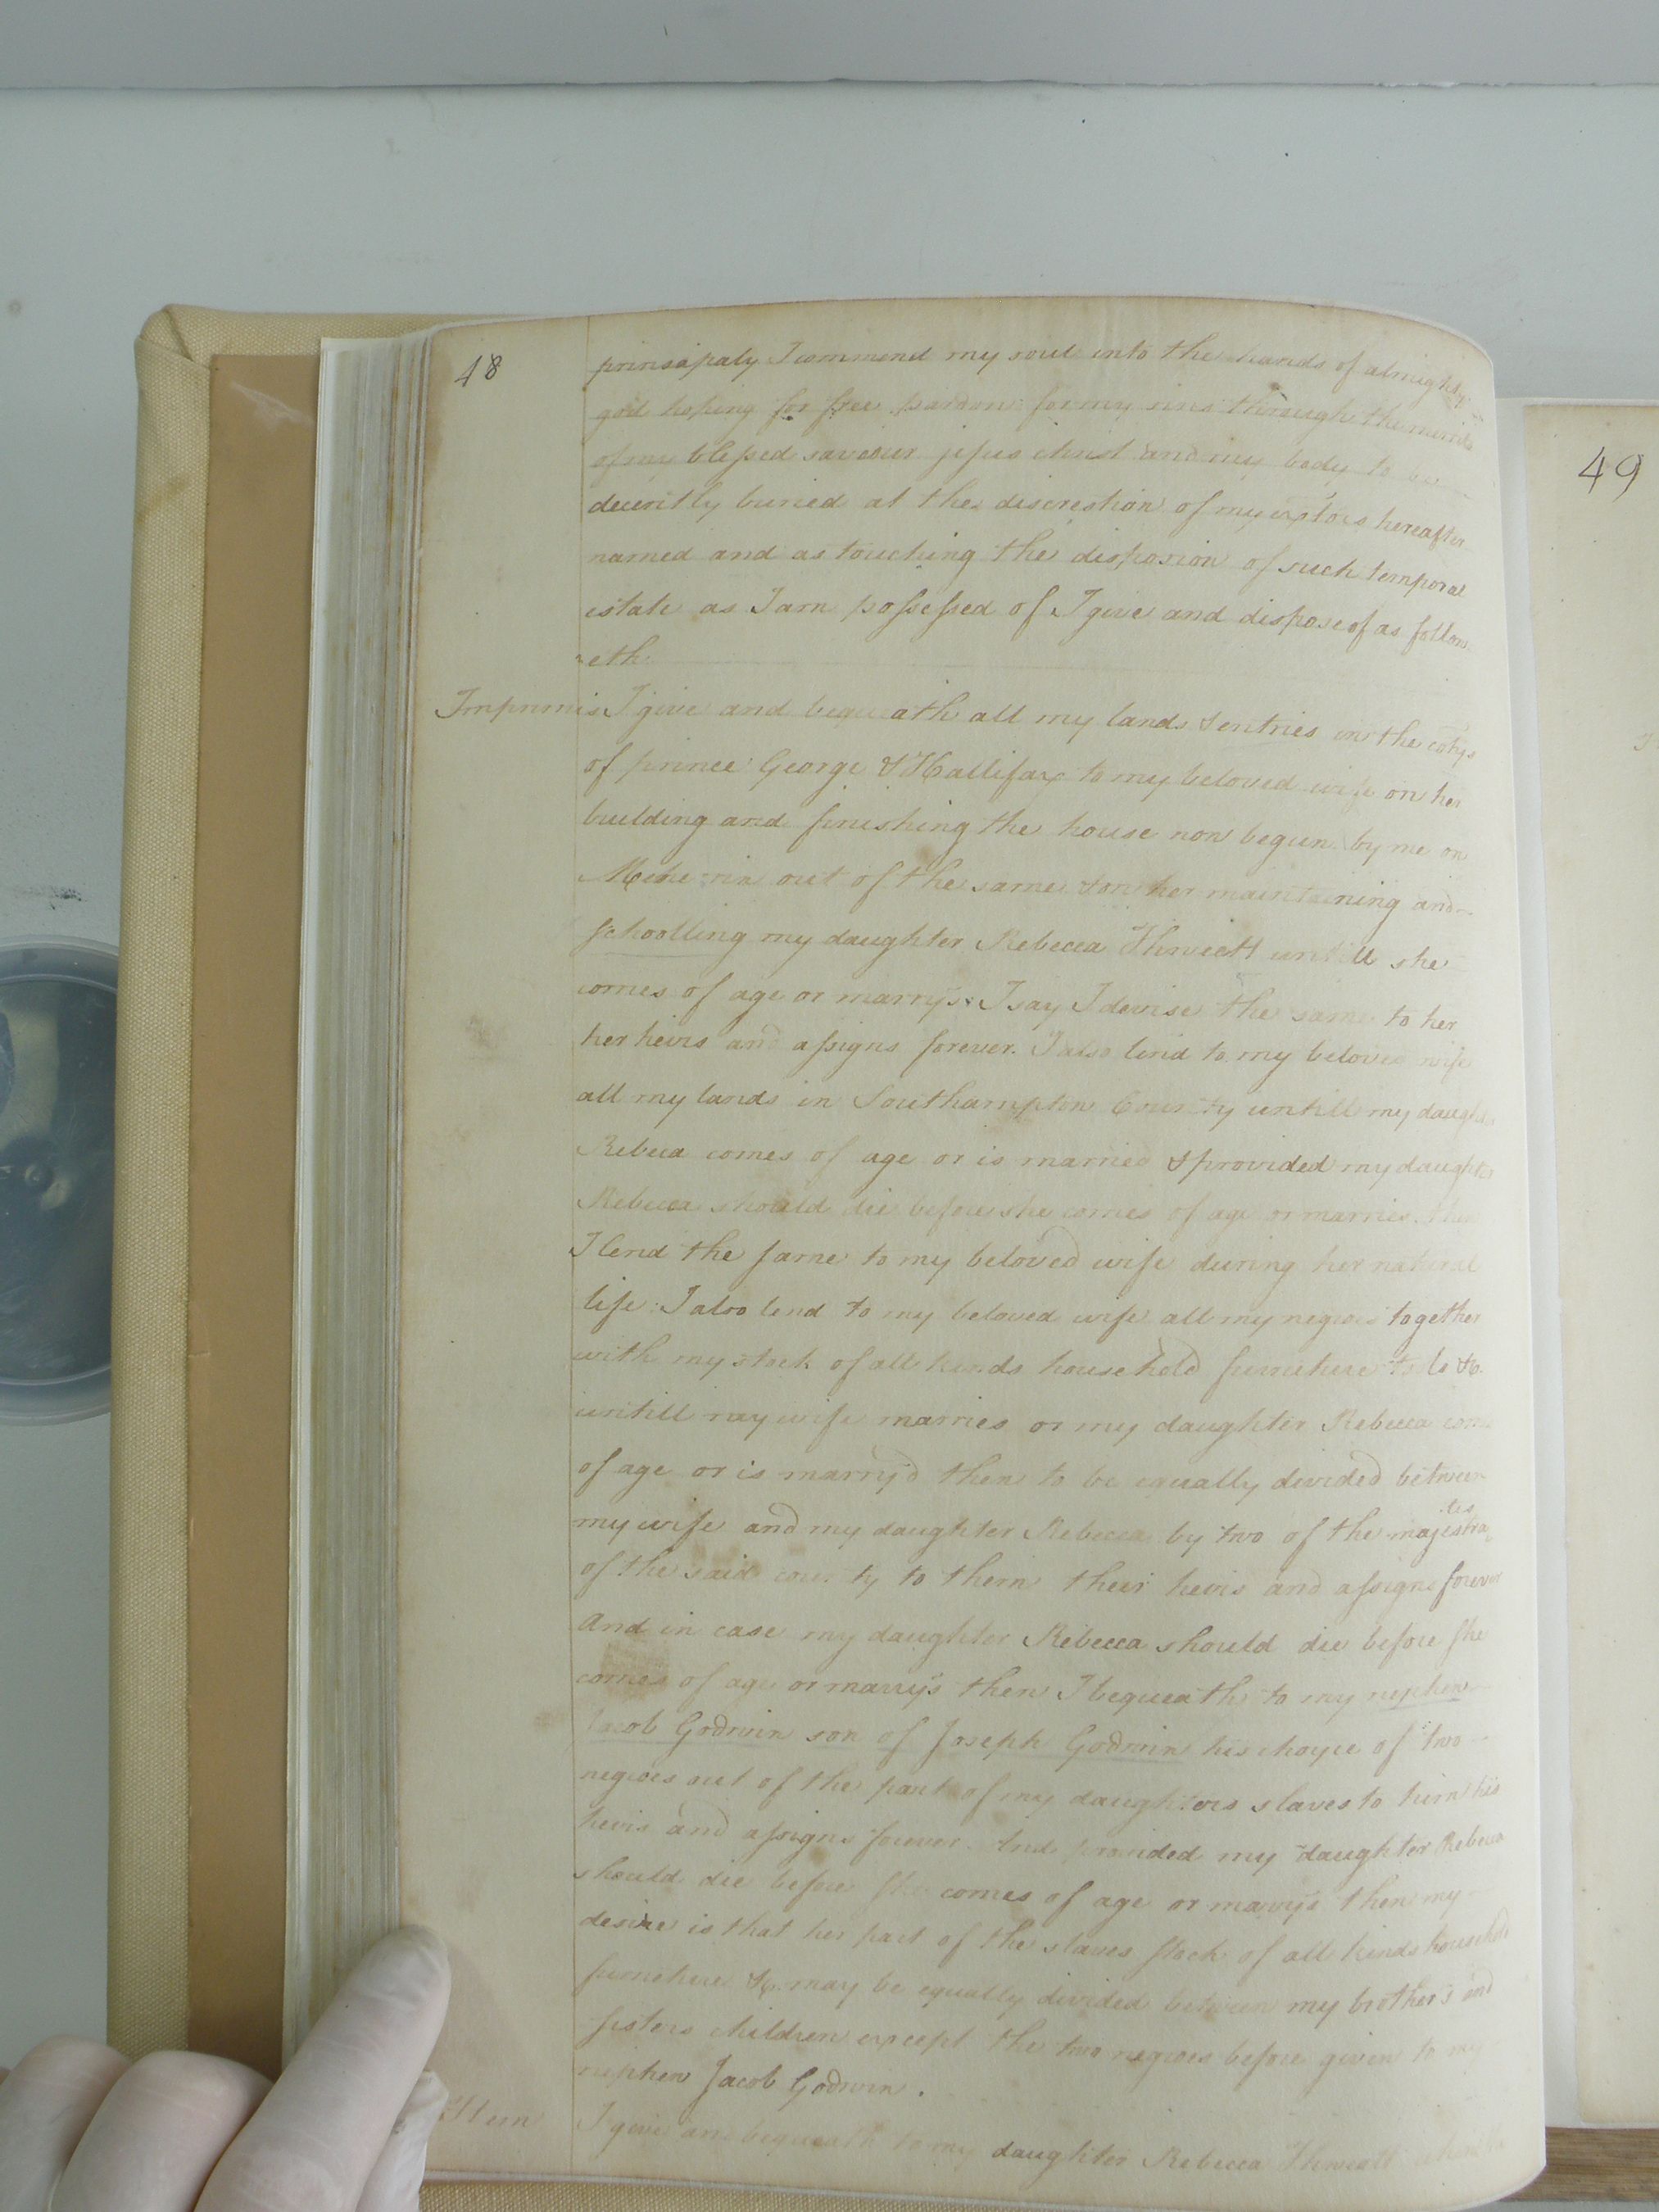 48
prinsipaly I commend my soul into the hands of almighty
god hoping for free pardon for my sins through the merrits
of my blessed saveour jesus christ and my body to be
decently buried at the discrestion of my exetors hereafter
named and as touching the disposion of such temporal
estate as I am possessed of I give and dispose of as follow
eth
Imprimis I give and bequeath all my lands & entries in the cotys
of prince George & Hallifax to my beloved wife on her
building and finishing the house now begun by me on
Meherrin out of the same & on her maintaining and
schoolling my daughter Rebecca Thweatt untill she
comes of age or marrys I say I devise the same to her
her heirs and assigns forever. I also lend to my beloved wife
all my lands in Southampton County untill my daughter
Rebeca comes of age or is married & provided my daughter
Rebecca should die before she comes of age or marries then
I lend the same to my beloved wife during her natural
life: I also lend to my beloved wife all my negroes together
with my stock of all kinds household furneture tools &c.
untill my wife marries or my daughter Rebecca comes
of age or is marry'd then to be equally divided between
my wife and my daughter Rebecca by two of the majestrates
of the said county to them their heirs and assigns forever
And in case my daughter Rebecca should die before she
comes of age or marrys then I bequeath to my nephew
Jacob Godwin son of Joseph Godwin his choyce of two
negroes out of the part of my daughters slaves to him his
heirs and assigns forever. And provided my daughter Rebecca
should die before she comes of age or marrys then my
desire is that her part of the slaves stock of all kinds household
furneture &c. may be equally divided between my brother's and
sisters children except the two negroes before given to my
nephew Jacob Godwin.
Item I give and bequeath to my daughter Rebecca Thweatt
49